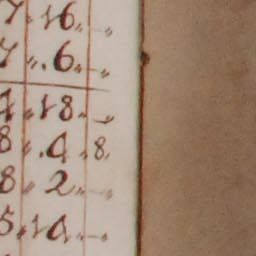 7 16. -
7 . 6. -
4 18 -
8 . 4 8.
8 2 -
5 14 -